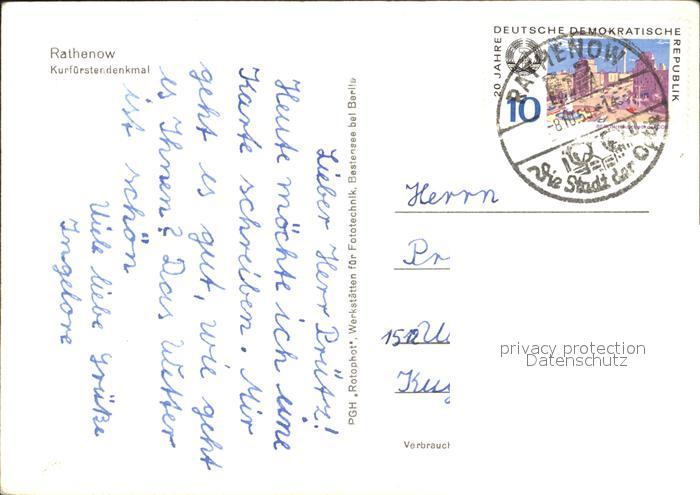 Rathenow
Kurfürstendenkmal
Lieber Herr Prütz!
Heute möchte ich eine
Karte schreiben. Mir
geht es gut, wie geht
es Ihnen? Das Wetter
ist schön
Viele liebe Grüße
Ingelore
PGH „Rotophot", Werkstätten für Fototechnik, Bestensee bei Berlin
20 JAHRE DEUTSCHE DEMOKRATISCHE REPUBLIK
10
RATHENOW
Die Stadt der Optik
Herrn
Pr
Kug
privacy protection
Datenschutz
Verbrauc